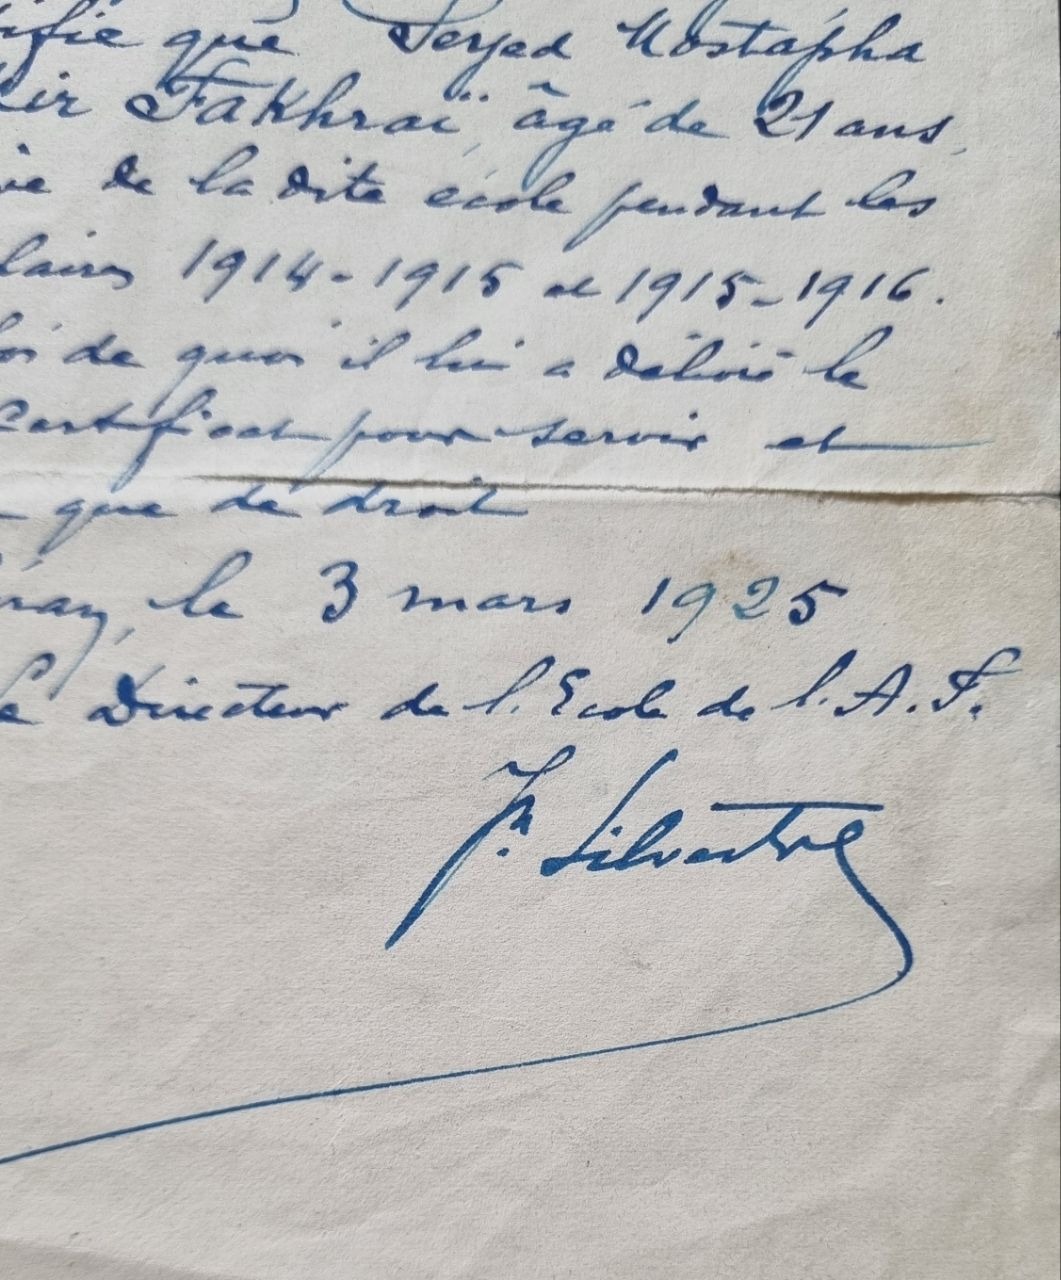 ifie que Seyed Mostapha
Fakhraï, âgé de 21 ans,
de la dite école pendant les
laires 1914-1915 et 1915-1916.
foi de quoi il lui a délivré le
Certificat pour servir et
que de droit
le 3 mars 1925
Le Directeur de l'Ecole de l'A.F.
Silvestre